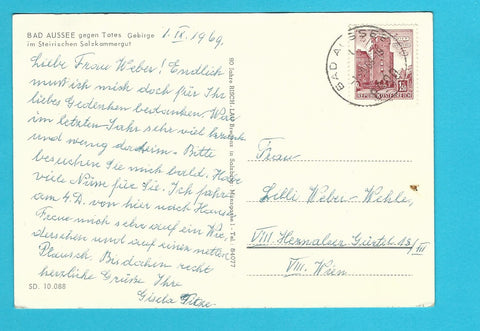 BAD AUSSEE gegen Totes Gebirge
im Steirischen Salzkammergut
1. IX. 1969.
Liebe Frau Weber! Endlich
muß ich mich doch für Ihr
liebes Gedenken bedanken. War
im letzten Jahr sehr viel
und wenig daheim. Bitte
besuchen Sie mich bald. Habe
viele für Sie. Ich fahre
am 4. von hier nach Hause
Freue mich sehr auf ein Wie
dersehen und auf einen netten
Plausch. Bis dahin recht
herzliche Grüße Ihre
Gisela
SD. 10.088
60 Jahre RISCH-LAU Bregenz in Salzburg
BAD AUSSEE
REPUBLIK ÖSTERREICH
Frau
Lilli Weber-Wehle,
VIII. Hernalser Gürtel 18/III
VIII. Wien